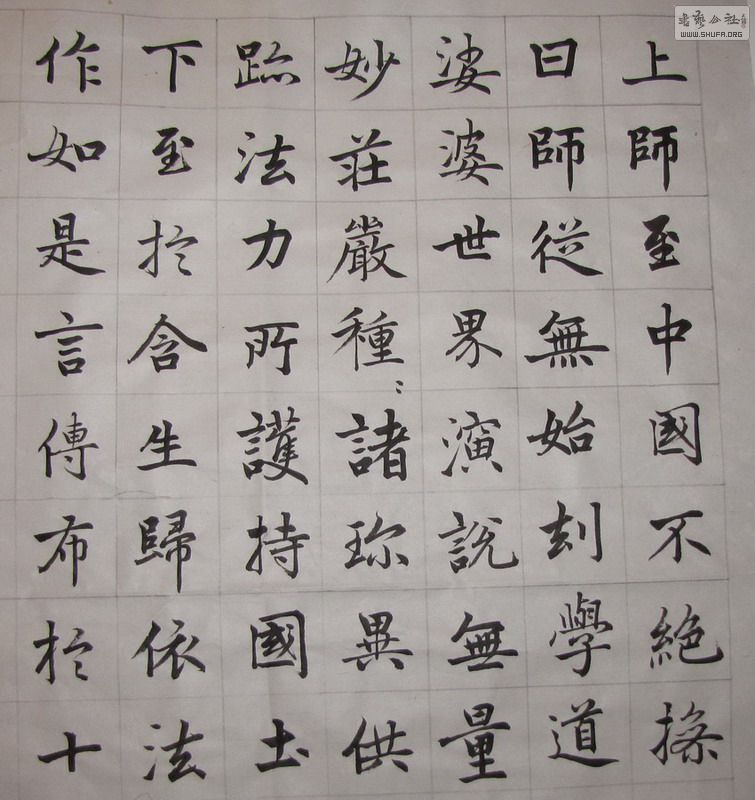 書藝公社
WWW.SHUFA.ORG
上師至中國不絕
曰師從無始刻學道
娑婆世界演說無量
妙莊嚴種〻諸珎異供
跡法力所護持國土
下至於含生歸依法
作如是言傳布於十